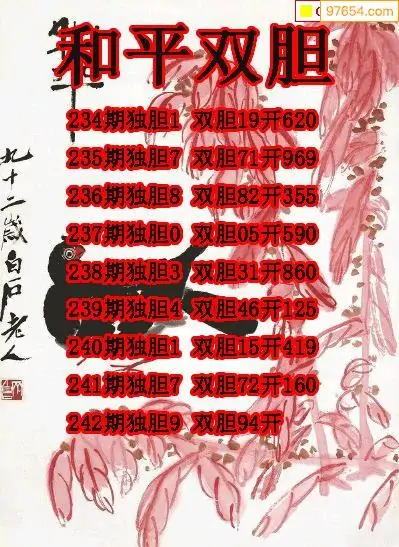 97654.com
和平双胆
234期独胆1 双胆19开620
235期独胆7 双胆71开969
236期独胆8 双胆82开355
237期独胆0 双胆05开590
238期独胆3 双胆31开860
239期独胆4 双胆46开125
240期独胆1 双胆15开419
241期独胆7 双胆72开160
242期独胆9 双胆94开
九十二岁白石老人